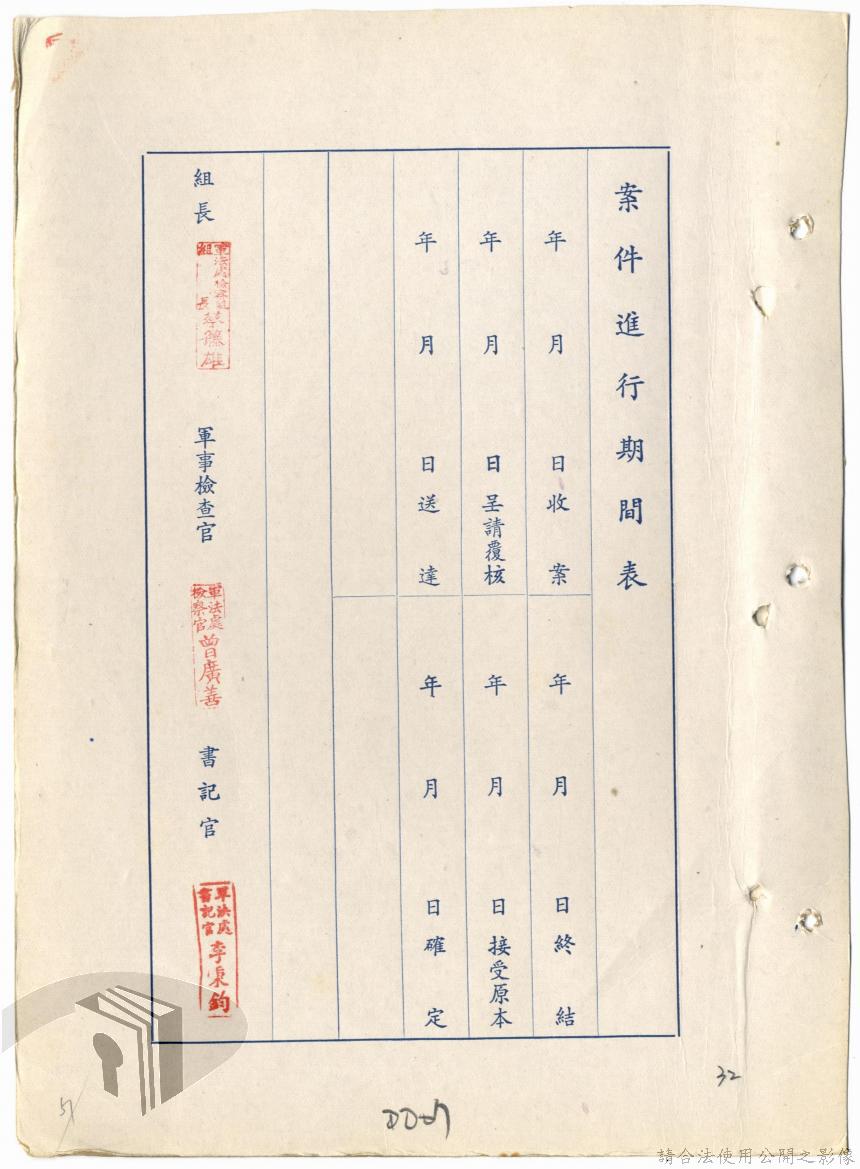 案件進行期間表
年月日收案
年月日終結
年月日呈請覆核
年月日接受原本
年月日送達
年月日確定
組長
軍法處檢察組
組長蔡藤雄
軍事檢查官
軍法處
檢察官曾廣善
書記官
軍法處
書記官李秉鈞
32
51
請合法使用公開之影像